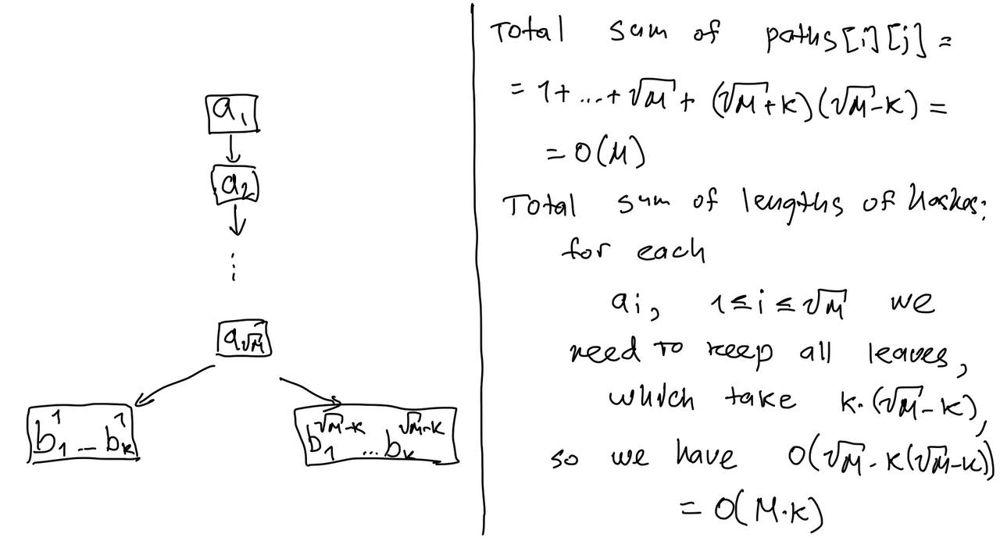 a₁
a₂
⋮
a√M
b₁¹ ... bₖ¹
b₁^(√M-k) ... bₖ^(√M-k)
Total sum of paths[i][j] =
= 1+...+√M + (√M+k)(√M-k) =
= O(M)
Total sum of lengths of hashes:
for each
aᵢ, 1≤i≤√M we
need to keep all leaves,
which take k·(√M-k),
so we have O(√M·k(√M-k))
= O(M·k)